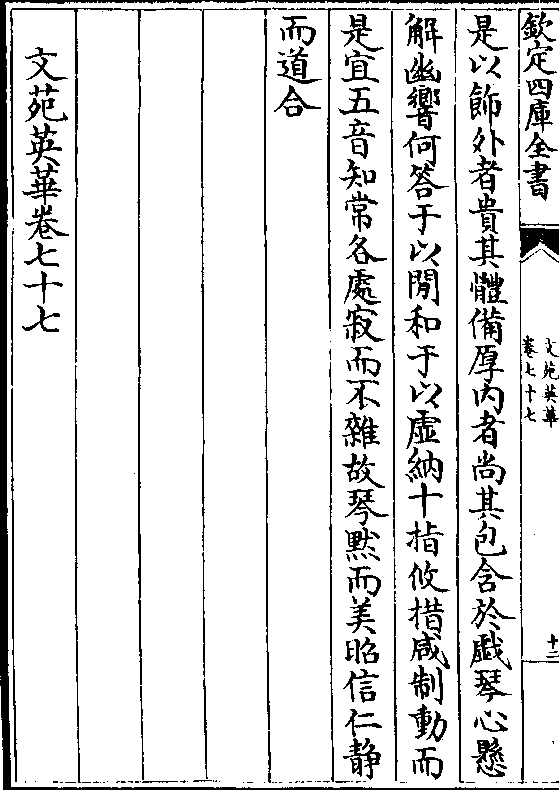 欽定四庫全書
文苑英華
卷七十七
十二
是以飾外者貴其體備厚内者尚其包含於戯琴心懸
解幽響何答于以閒和于以虛納十指攸措咸制動而
是宜五音知常各處寂而不雜故琴黙而美昭信仁静
而道合
文苑英華卷七十七